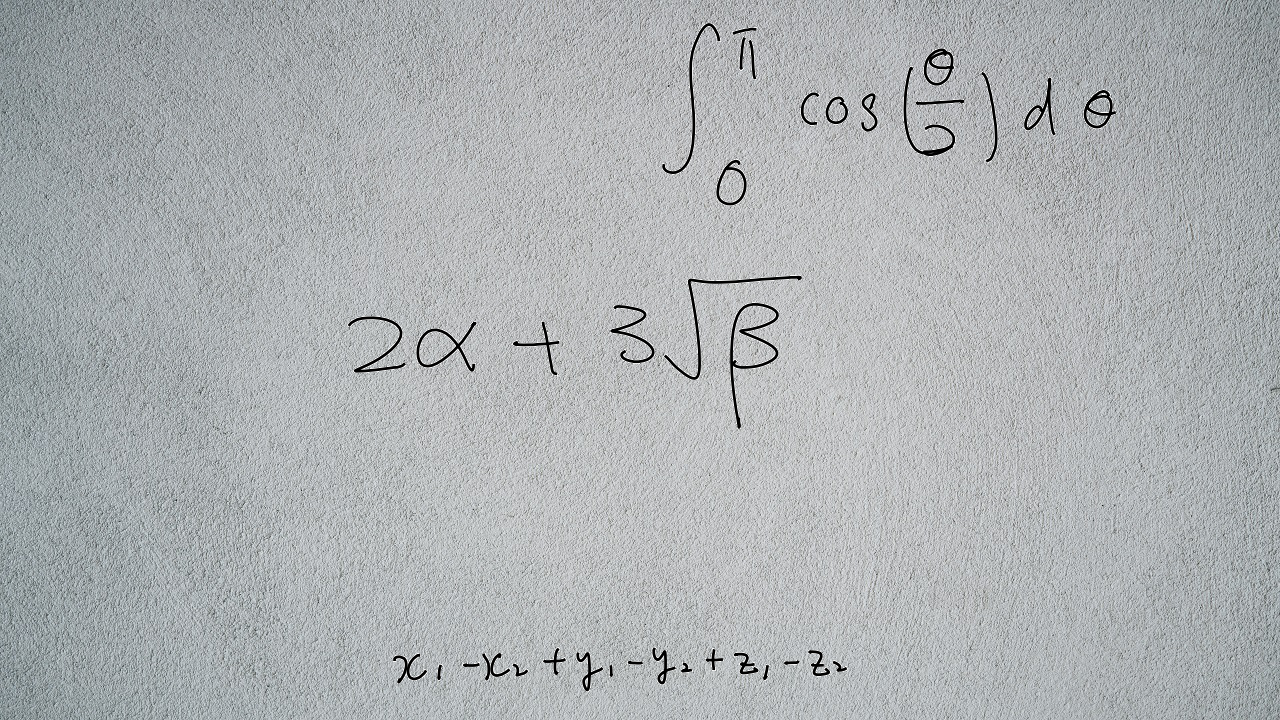 \int_{0}^{\pi} \cos\left(\frac{\theta}{2}\right) d\theta
2\alpha + 3\sqrt{\beta}
x_1 - x_2 + y_1 - y_2 + z_1 - z_2